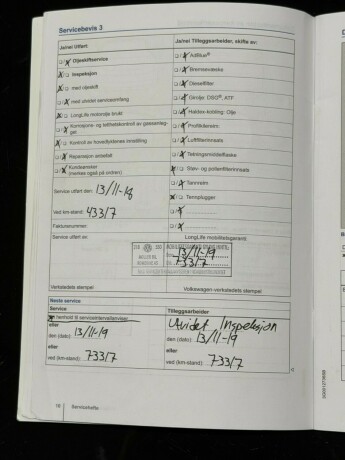 Servicebevis 3
Ja/nei Utført:
Ja/nei Tilleggsarbeider, skiftes av:
Oljeskiftservice
AdBlue®
Inspeksjon
Bremsevæske
med oljeskift
Dieselfilter
med utvidet serviceomfang
Girolje: DSG®, ATF
LongLife motorolje brukt
Haldex-kobling: Olje
Korrosjons- og tetthetskontroll av gassanleg-
get
Kontroll av hovedlyktenes innstilling
Luftfilterinnsats
Reparasjon anbefalt
Tetningsmiddelflaske
Kundeønsker
(merkes også på ordren)
Støv- og pollenfilterinnsats
Service utført den: 13/11-18
Tannreim
Tennplugger
Ved km-stand: 43317
Fakturanummer:
Service utført av:
LongLife mobilitetsgaranti
13/11-19
73317
Verkstedets stempel
Volkswagen-verkstedets stempel
Neste service
Service
Tilleggsarbeider
I henhold til serviceintervallanviser
Utvidet Inspeksjon
eller
den (dato): 13/11-19
den (dato): 13/11-19
eller
eller
ved (km-stand): 73317
ved (km-stand): 73317
16
Servicehefte